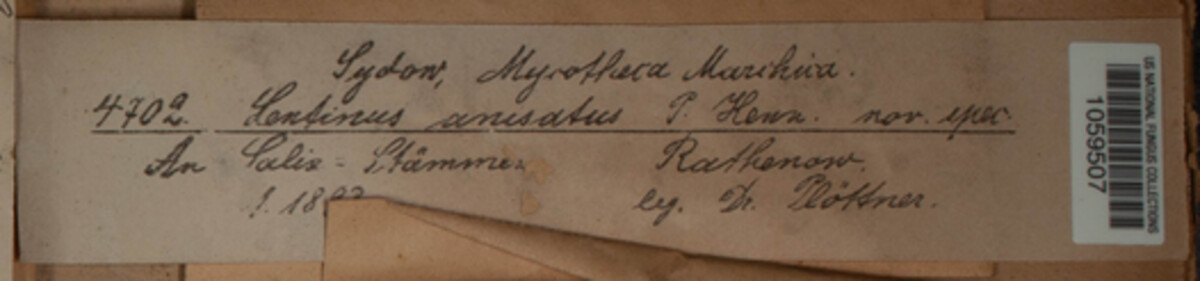 Sydow, Mycotheca Marchica.
470a. Lentinus anisatus P. Henn. nov. spec.
An Salix-Stämmen Rathenow.
leg. Dr. Plöttner.
US NATIONAL FUNGUS COLLECTIONS
1059507